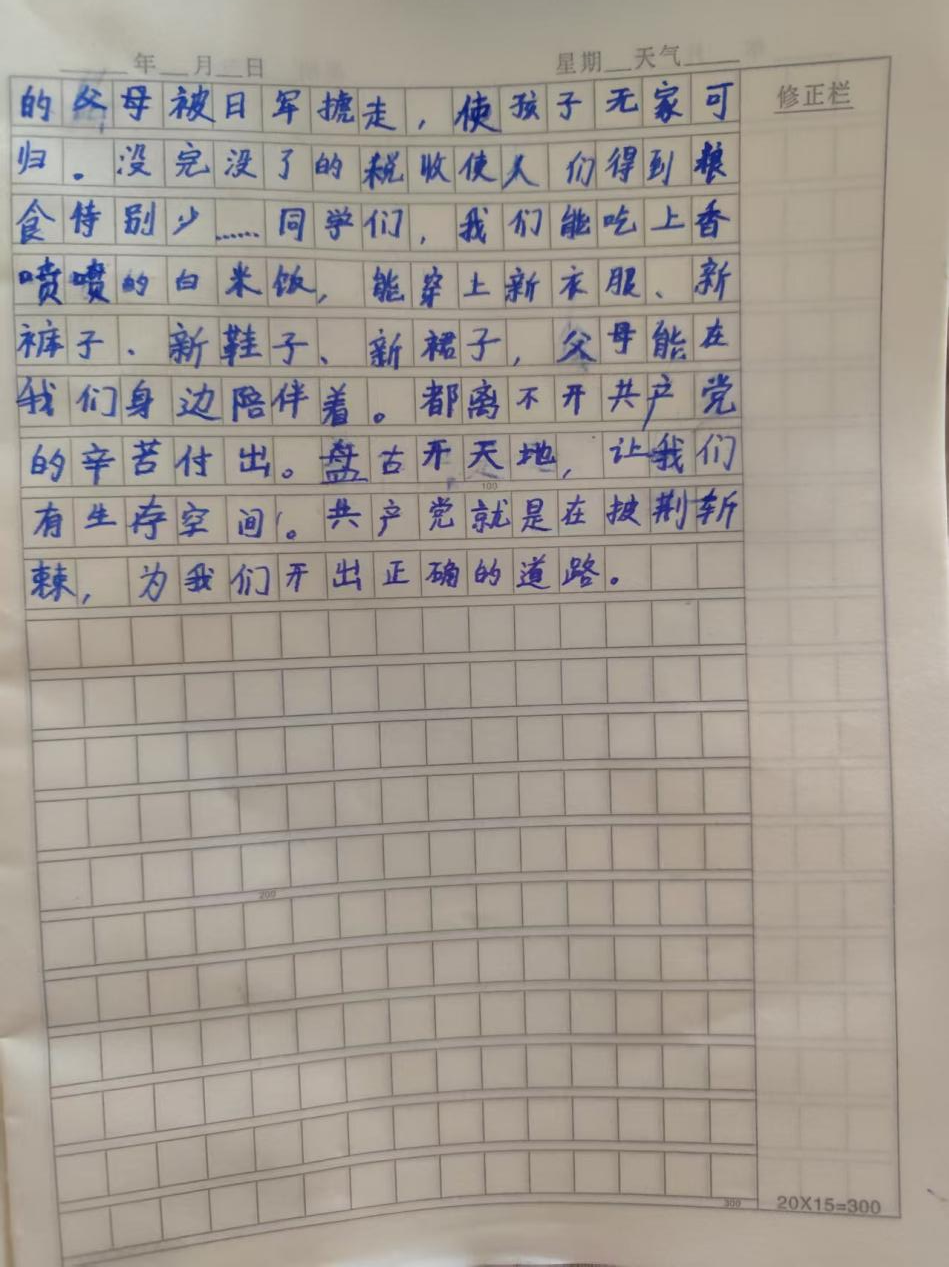 年 月 日 星期 天气
修正栏
的父母被日军掳走，使孩子无家可
归。没完没了的税收使人们得到粮
食特别少……同学们，我们能吃上香
喷喷的白米饭，能穿上新衣服、新
裤子、新鞋子、新裙子，父母能在
我们身边陪伴着。都离不开共产党
的辛苦付出。盘古开天地，让我们
100
有生存空间。共产党就是在披荆斩
棘，为我们开出正确的道路。
200
300
20X15=300